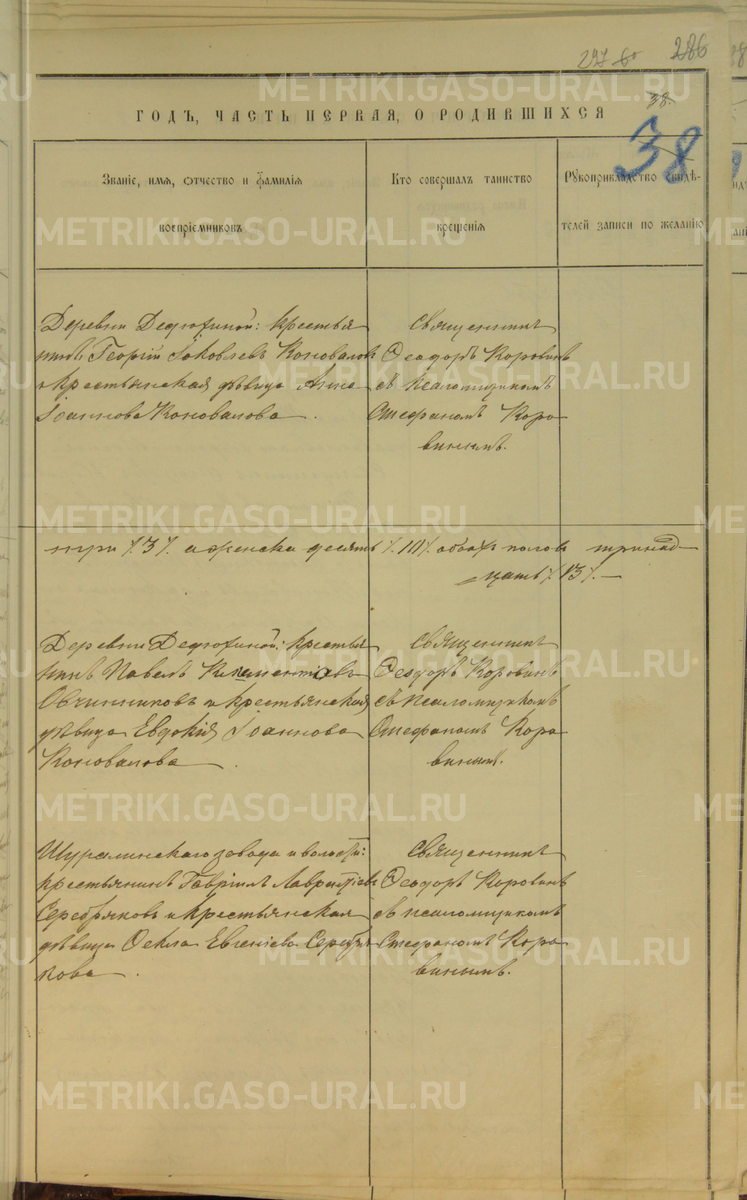 297 об 286
38.
38
ГОДЪ, ЧАСТЬ ПЕРВАЯ, О РОДИВШИХСЯ
Званіе, имя, отчество и фамилія
воспріемниковъ
Кто совершалъ таинство
крещенія
Рукоприкладство свидѣ-
телей записи по желанію
Деревни Дедюхиной: крестья
нинъ Георгій Іаковлевъ Коновалов
и крестьянская дѣвица Анна
Іоаннова Коновалова.
Священникъ
Ѳеодоръ Коровинъ
съ псаломщикомъ
Стефаномъ Коро
винымъ.
три /3/. а женска десять /.10/. обоихъ половъ тринад-
цать /.13/.—
Деревни Дедюхиной: крестья
нинъ Павелъ Климентіевъ
Овчинниковъ и крестьянская
дѣвица Евдокія Іоаннова
Коновалова.
Священникъ
Ѳеодоръ Коровинъ
съ псаломщикомъ
Стефаномъ Коро
винымъ.
Шуралинскаго завода и волости:
крестьянинъ Гавріилъ Лаврентіевъ
Серебряковъ и крестьянская
дѣвица Ѳекла Евгеніева Серебря
кова.
Священникъ
Ѳеодоръ Коровинъ
съ псаломщикомъ
Стефаномъ Коро
винымъ.
METRIKI.GASO-URAL.RU